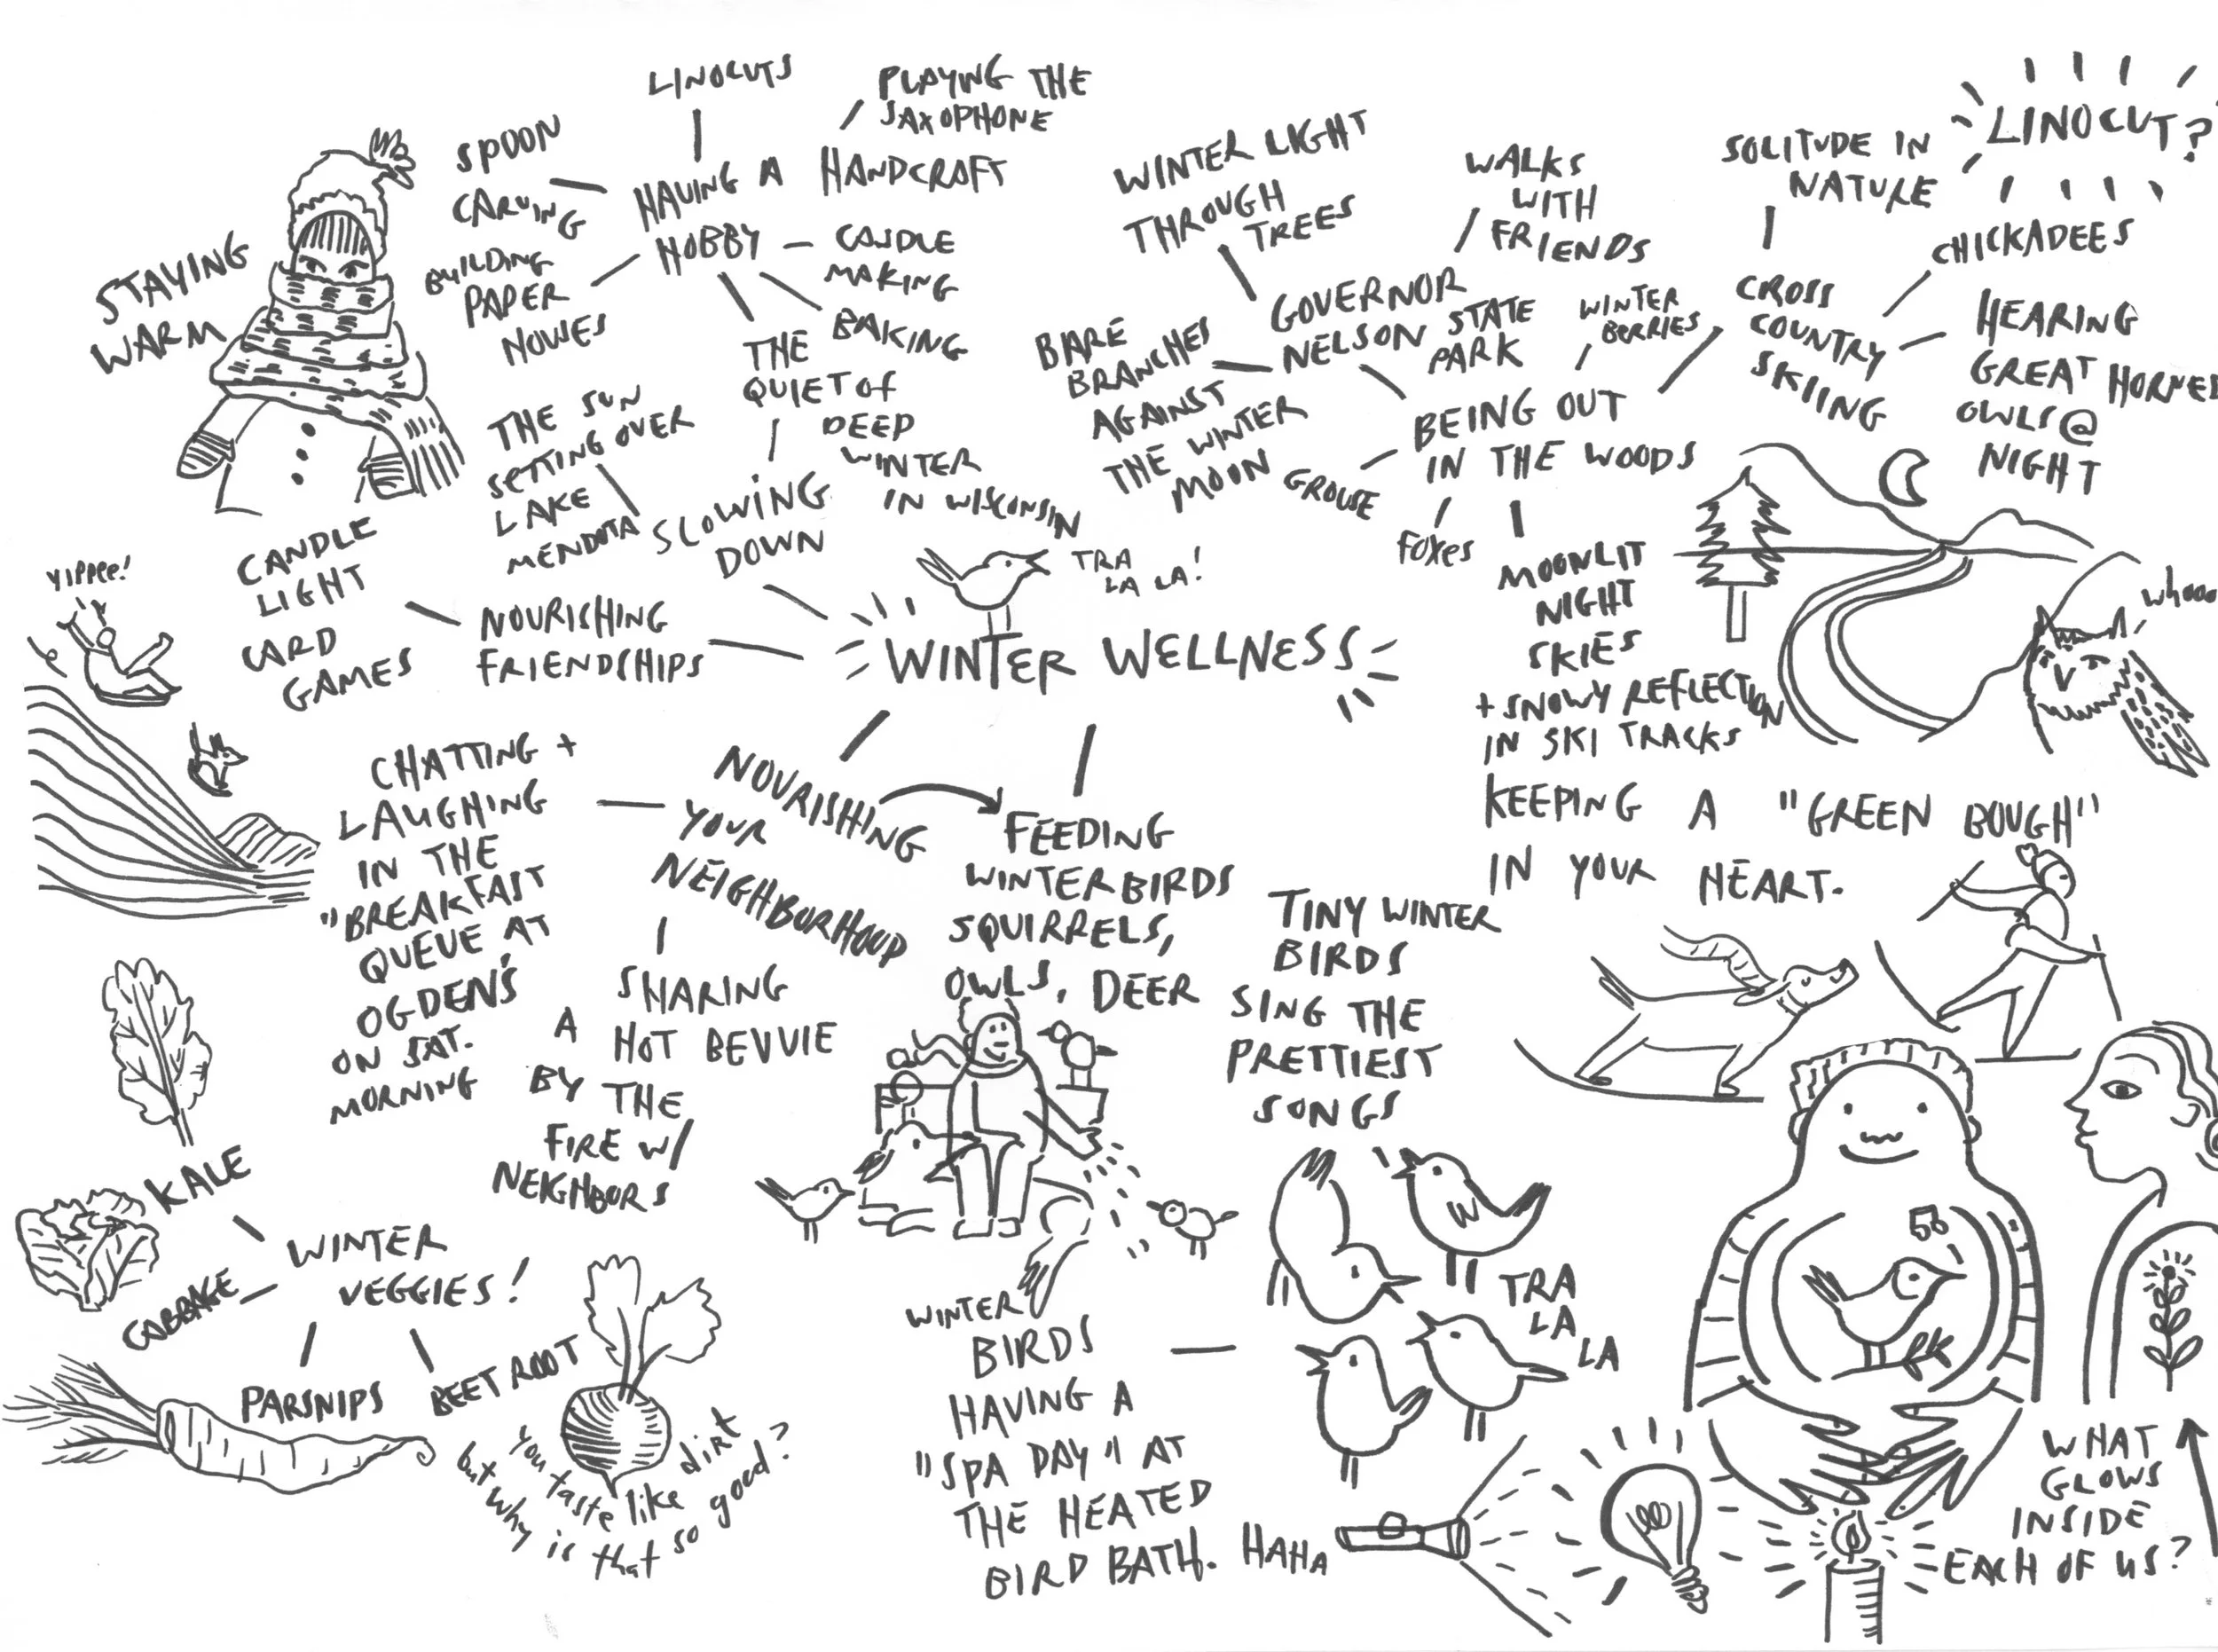 LINOCUTS
PLAYING THE
SAXOPHONE
SPOON
CARVING
HAVING A HANDCRAFT
HOBBY
BUILDING
PAPER
HOUSES
CANDLE
MAKING
BAKING
STAYING
WARM
THE
QUIET OF
DEEP
WINTER
IN WISCONSIN
THE SUN
SETTING OVER
LAKE
MENDOTA
SLOWING
DOWN
WINTER LIGHT
THROUGH
TREES
WALKS
WITH
FRIENDS
SOLITUDE IN
NATURE
LINOCUT?
CHICKADEES
GOVERNOR
NELSON STATE
PARK
WINTER
BERRIES
CROSS
COUNTRY
SKIING
HEARING
GREAT HORNED
OWLS @
NIGHT
BARE
BRANCHES
AGAINST
THE WINTER
MOON
BEING OUT
IN THE WOODS
GROUSE
FOXES
MOONLIT
NIGHT
SKIES
+ SNOWY REFLECTION
IN SKI TRACKS
whooo
YIPPEE!
CANDLE
LIGHT
CARD
GAMES
NOURISHING
FRIENDSHIPS
TRA
LA LA!
WINTER WELLNESS
CHATTING +
LAUGHING
IN THE
"BREAKFAST
QUEUE AT
OGDEN'S
ON SAT.
MORNING
NOURISHING
YOUR
NEIGHBORHOOD
FEEDING
WINTER BIRDS
SQUIRRELS,
OWLS, DEER
SHARING
A HOT BEVVIE
BY THE
FIRE W/
NEIGHBORS
TINY WINTER
BIRDS
SING THE
PRETTIEST
SONGS
KEEPING A "GREEN BOUGH"
IN YOUR HEART.
KALE
CABBAGE
WINTER
VEGGIES!
PARSNIPS
BEET ROOT
you taste like dirt
but why is that so good?
WINTER
BIRDS
HAVING A
"SPA DAY" AT
THE HEATED
BIRD BATH. HAHA
TRA
LA
LA
WHAT
GLOWS
INSIDE
EACH OF US?